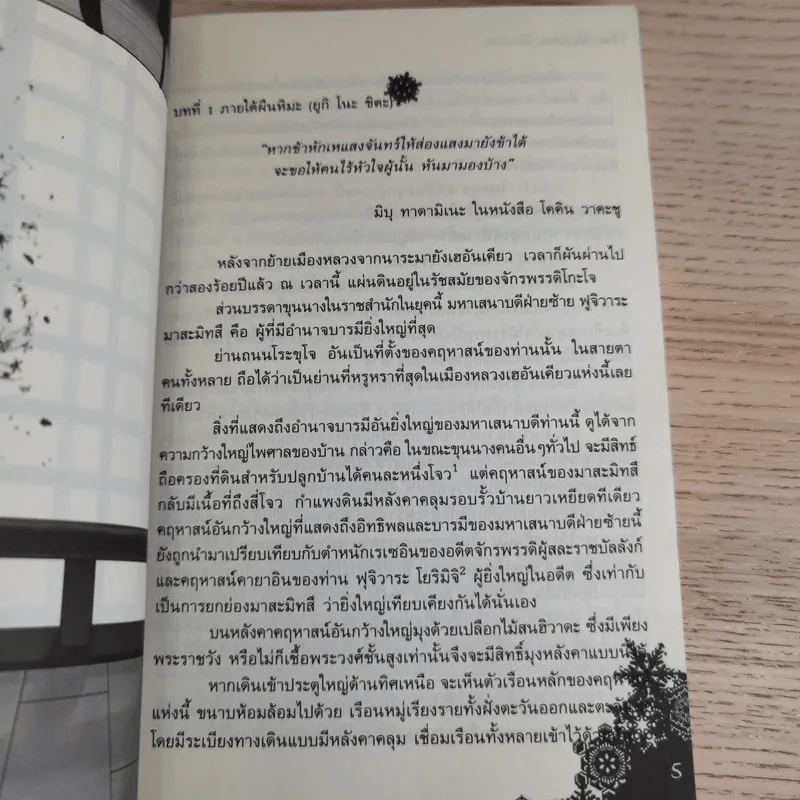 บทที่ 1 ภายใต้ผืนหิมะ (ยูกิ โนะ ชิตะ)
"หากข้าหักเหแสงจันทร์ให้ส่องแสงมายังข้าได้
จะขอให้คนไร้หัวใจผู้นั้น หันมามองบ้าง"
มิบุ ทาดามิเนะ ในหนังสือ โคคิน วาคะชู
หลังจากย้ายเมืองหลวงจากนาระมายังเฮอันเคียว เวลาก็ผันผ่านไป
กว่าสองร้อยปีแล้ว ณ เวลานี้ แผ่นดินอยู่ในรัชสมัยของจักรพรรดิโกะโจ
ส่วนบรรดาขุนนางในราชสำนักในยุคนี้ มหาเสนาบดีฝ่ายซ้าย ฟุจิวาระ
มาสะมิทสึ คือ ผู้ที่มีอำนาจบารมียิ่งใหญ่ที่สุด
ย่านถนนโระขุโจ อันเป็นที่ตั้งของคฤหาสน์ของท่านนั้น ในสายตา
คนทั้งหลาย ถือได้ว่าเป็นย่านที่หรูหราที่สุดในเมืองหลวงเฮอันเคียวแห่งนี้เลย
ทีเดียว
สิ่งที่แสดงถึงอำนาจบารมีอันยิ่งใหญ่ของมหาเสนาบดีท่านนี้ ดูได้จาก
ความกว้างใหญ่ไพศาลของบ้าน กล่าวคือ ในขณะขุนนางคนอื่นๆทั่วไป จะมีสิทธิ์
ถือครองที่ดินสำหรับปลูกบ้านได้คนละหนึ่งโจว1 แต่คฤหาสน์ของมาสะมิทสึ
กลับมีเนื้อที่ถึงสี่โจว กำแพงดินมีหลังคาคลุมรอบรั้วบ้านยาวเหยียดทีเดียว
คฤหาสน์อันกว้างใหญ่ที่แสดงถึงอิทธิพลและบารมีของมหาเสนาบดีฝ่ายซ้ายนี้
ยังถูกนำมาเปรียบเทียบกับตำหนักเรเซอินของอดีตจักรพรรดิผู้สละราชบัลลังก์
และคฤหาสน์คายาอินของท่าน ฟุจิวาระ โยริมิจิ2 ผู้ยิ่งใหญ่ในอดีต ซึ่งเท่ากับ
เป็นการยกย่องมาสะมิทสึ ว่ายิ่งใหญ่เทียบเคียงกันได้นั่นเอง
บนหลังคาคฤหาสน์อันกว้างใหญ่มุงด้วยเปลือกไม้สนฮิวาดะ ซึ่งมีเพียง
พระราชวัง หรือไม่ก็เชื้อพระวงศ์ชั้นสูงเท่านั้นจึงจะมีสิทธิ์มุงหลังคาแบบนี้ได้
หากเดินเข้าประตูใหญ่ด้านทิศเหนือ จะเห็นตัวเรือนหลักของ
แห่งนี้ ขนาบห้อมล้อมไปด้วย เรือนหมู่เรียงรายทั้งฝั่งตะวันออกและ
โดยมีระเบียงทางเดินแบบมีหลังคาคลุม เชื่อมเรือนทั้งหลายเข้าไว้
5